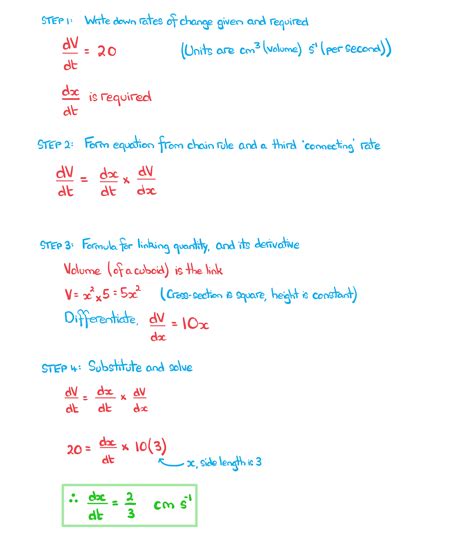 STEP 1: Write down rates of change given and required
dV/dt = 20 (Units are cm³ (volume) s⁻¹ (per second))
dx/dt is required
STEP 2: Form equation from chain rule and a third 'connecting' rate
dV/dt = dx/dt × dV/dx
STEP 3: Formula for linking quantity, and its derivative
Volume (of a cuboid) is the link
V = x² × 5 = 5x² (Cross-section is square, height is constant)
Differentiate, dV/dx = 10x
STEP 4: Substitute and solve
dV/dt = dx/dt × dV/dx
20 = dx/dt × 10(3)
x, side length is 3
∴ dx/dt = 2/3 cm s⁻¹